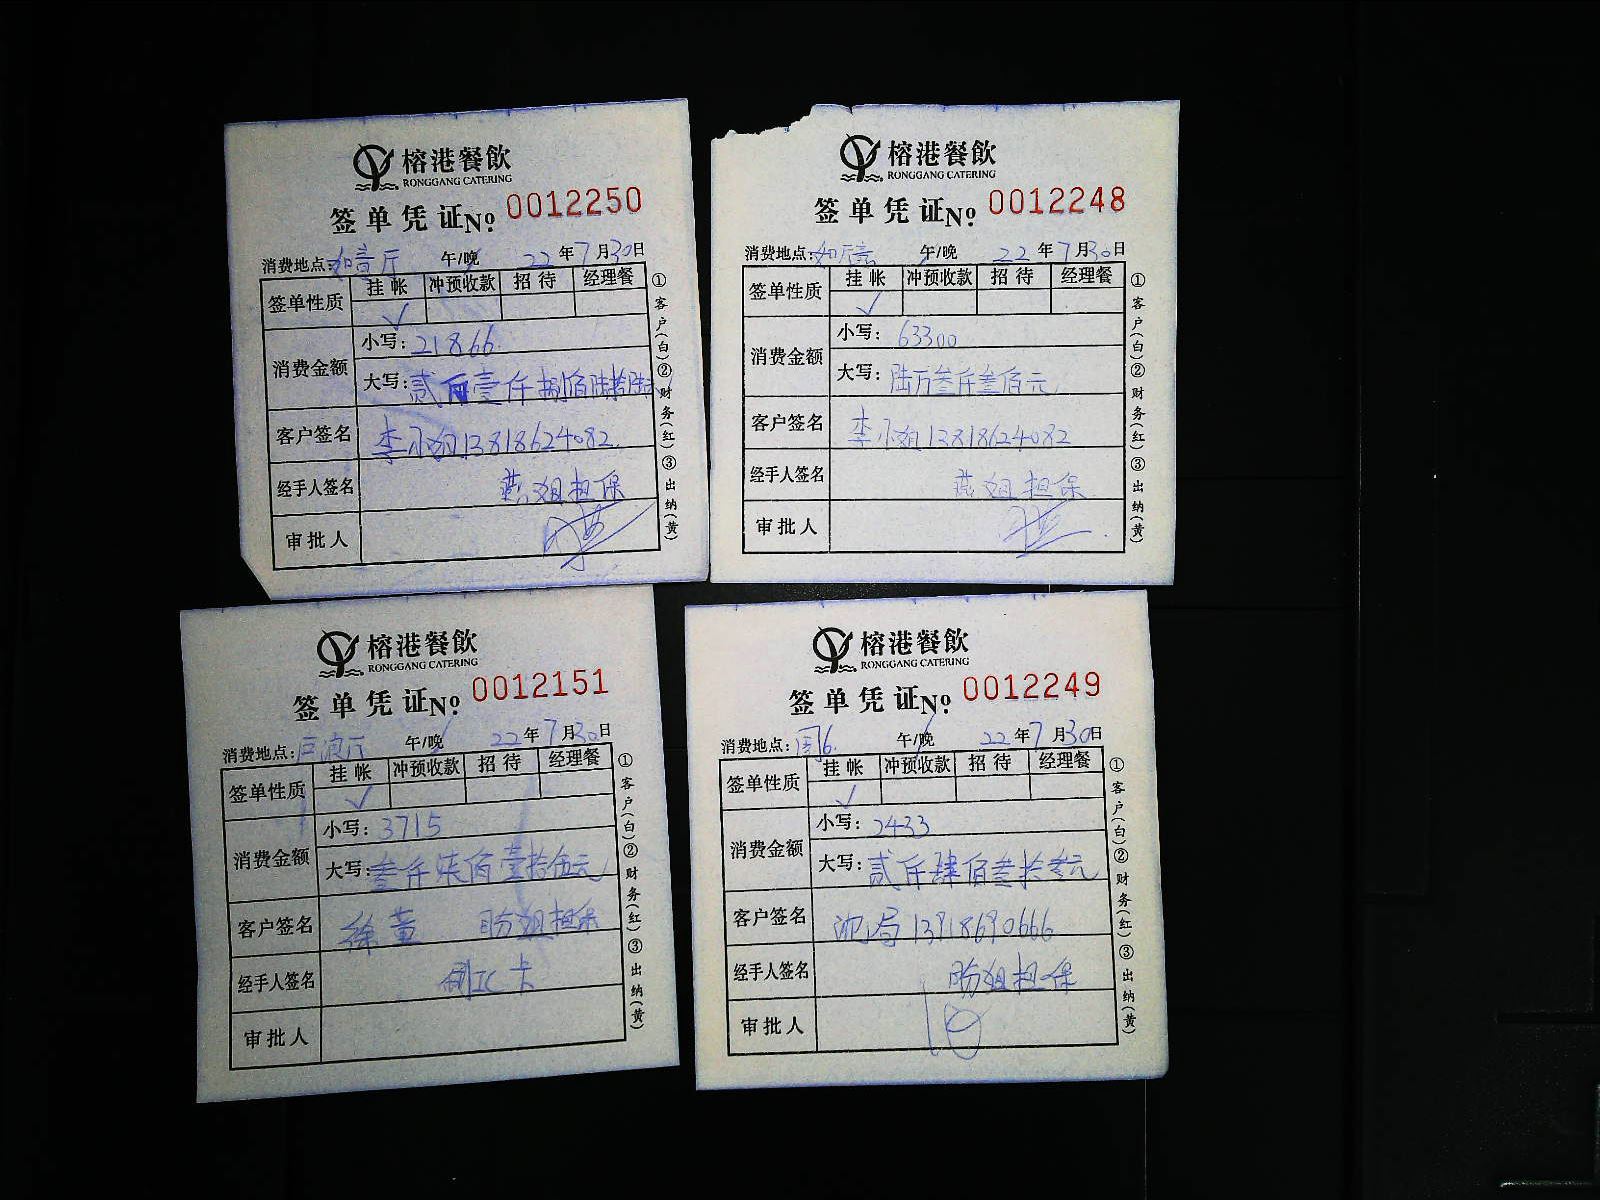 榕港餐飲
RONGGANG CATERING
签单凭证 No 0012250
消费地点: 如意厅 午/晚 22年7月30日
签单性质 挂帐 冲预收款 招待 经理餐
✓
消费金额 小写: 21866
大写: 贰万壹仟捌佰陆拾陆元
客户签名 李小姐13818624082
经手人签名 燕姐担保
审批人
①客户(白)②财务(红)③出纳(黄)
榕港餐飲
RONGGANG CATERING
签单凭证 No 0012248
消费地点: 午/晚 22年7月30日
签单性质 挂帐 冲预收款 招待 经理餐
✓
消费金额 小写: 63300
大写: 陆万叁仟叁佰元
客户签名 李小姐13818624082
经手人签名 燕姐担保
审批人
①客户(白)②财务(红)③出纳(黄)
榕港餐飲
RONGGANG CATERING
签单凭证 No 0012151
消费地点: 厅 午/晚 22年7月30日
签单性质 挂帐 冲预收款 招待 经理餐
✓
消费金额 小写: 3715
大写: 叁仟柒佰壹拾伍元
客户签名 徐董 盼姐担保
经手人签名 制IC卡
审批人
①客户(白)②财务(红)③出纳(黄)
榕港餐飲
RONGGANG CATERING
签单凭证 No 0012249
消费地点: 午/晚 22年7月30日
签单性质 挂帐 冲预收款 招待 经理餐
✓
消费金额 小写: 2433
大写: 贰仟肆佰叁拾叁元
客户签名 沈局13918690666
经手人签名 盼姐担保
审批人
①客户(白)②财务(红)③出纳(黄)